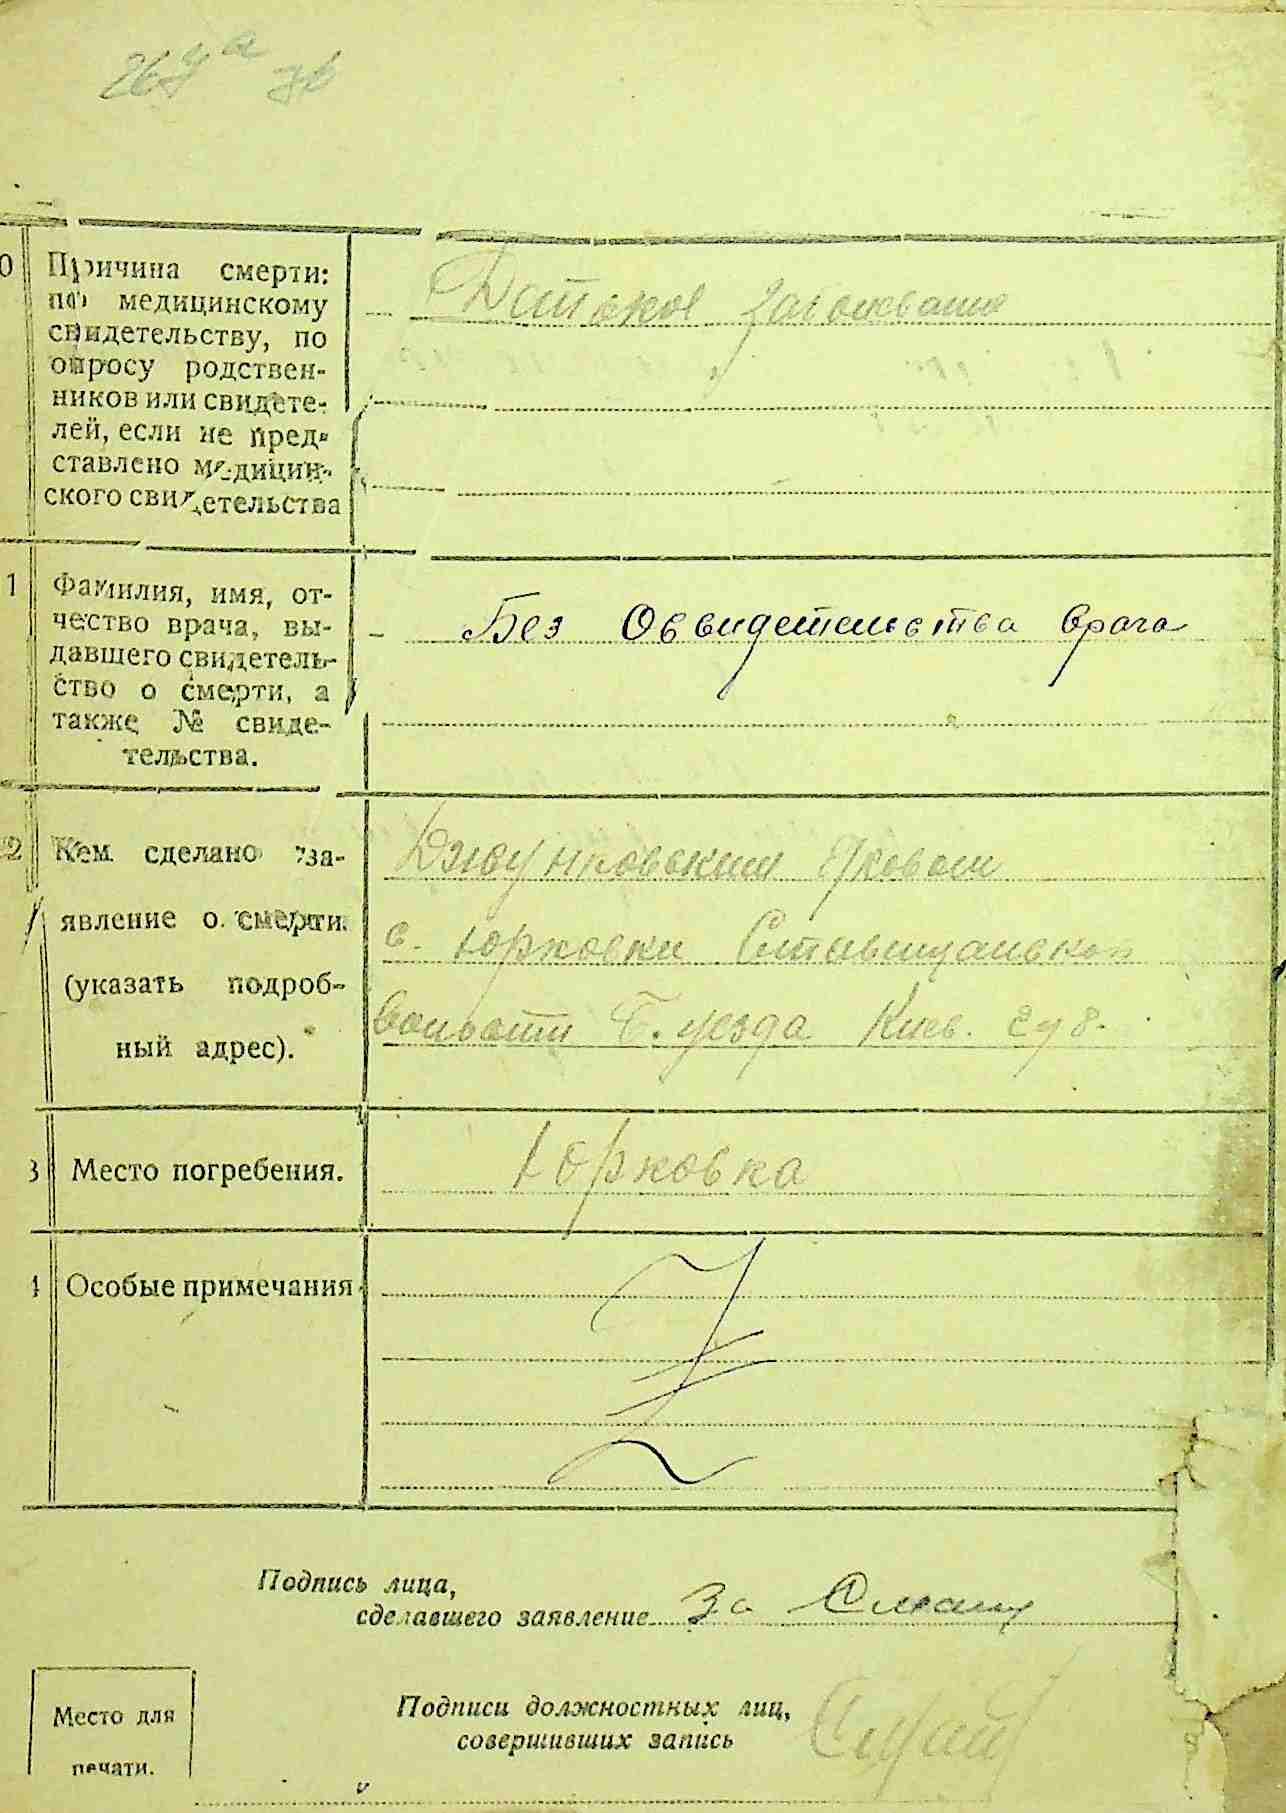 0 Причина смерти:
по медицинскому
свидетельству, по
опросу родствен-
ников или свидете-
лей, если не пред-
ставлено медицин-
ского свидетельства
1 Фамилия, имя, от-
чество врача, вы-
давшего свидетель-
ство о смерти, а
также № свиде-
тельства.
Без Освидетельства врача
2 Кем сделано за-
явление о смерти
(указать подроб-
ный адрес).
Яковом
с. Юрковки
волости Б. уезда Киев. губ.
3 Место погребения.
Юрковка
4 Особые примечания
Подпись лица,
сделавшего заявление За
Подписи должностных лиц,
совершивших запись
Место для
печати.